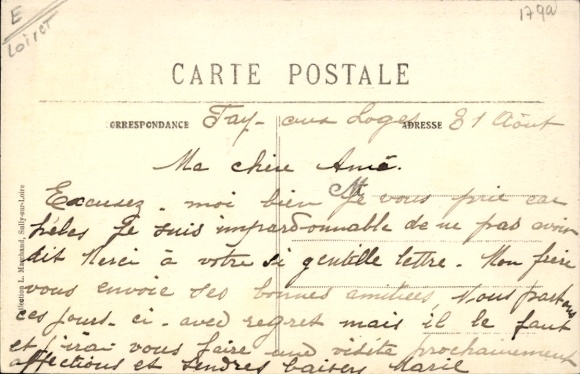 E
Loiret
179a
CARTE POSTALE
CORRESPONDANCE
ADRESSE
Fay-aux Loges 31 Août
Ma chère Amie.
Excusez-moi bien je vous prie car
hélas je suis impardonnable de ne pas avoir
dit Merci à votre si gentille lettre. Mon frère
vous envoie ses bonnes amitiées, Nous partons
ces jours-ci-avec regret mais il le faut
et j'irai vous faire une visite prochainement
affections et tendres baisers Marie
Collection L. Marchand, Sully-sur-Loire